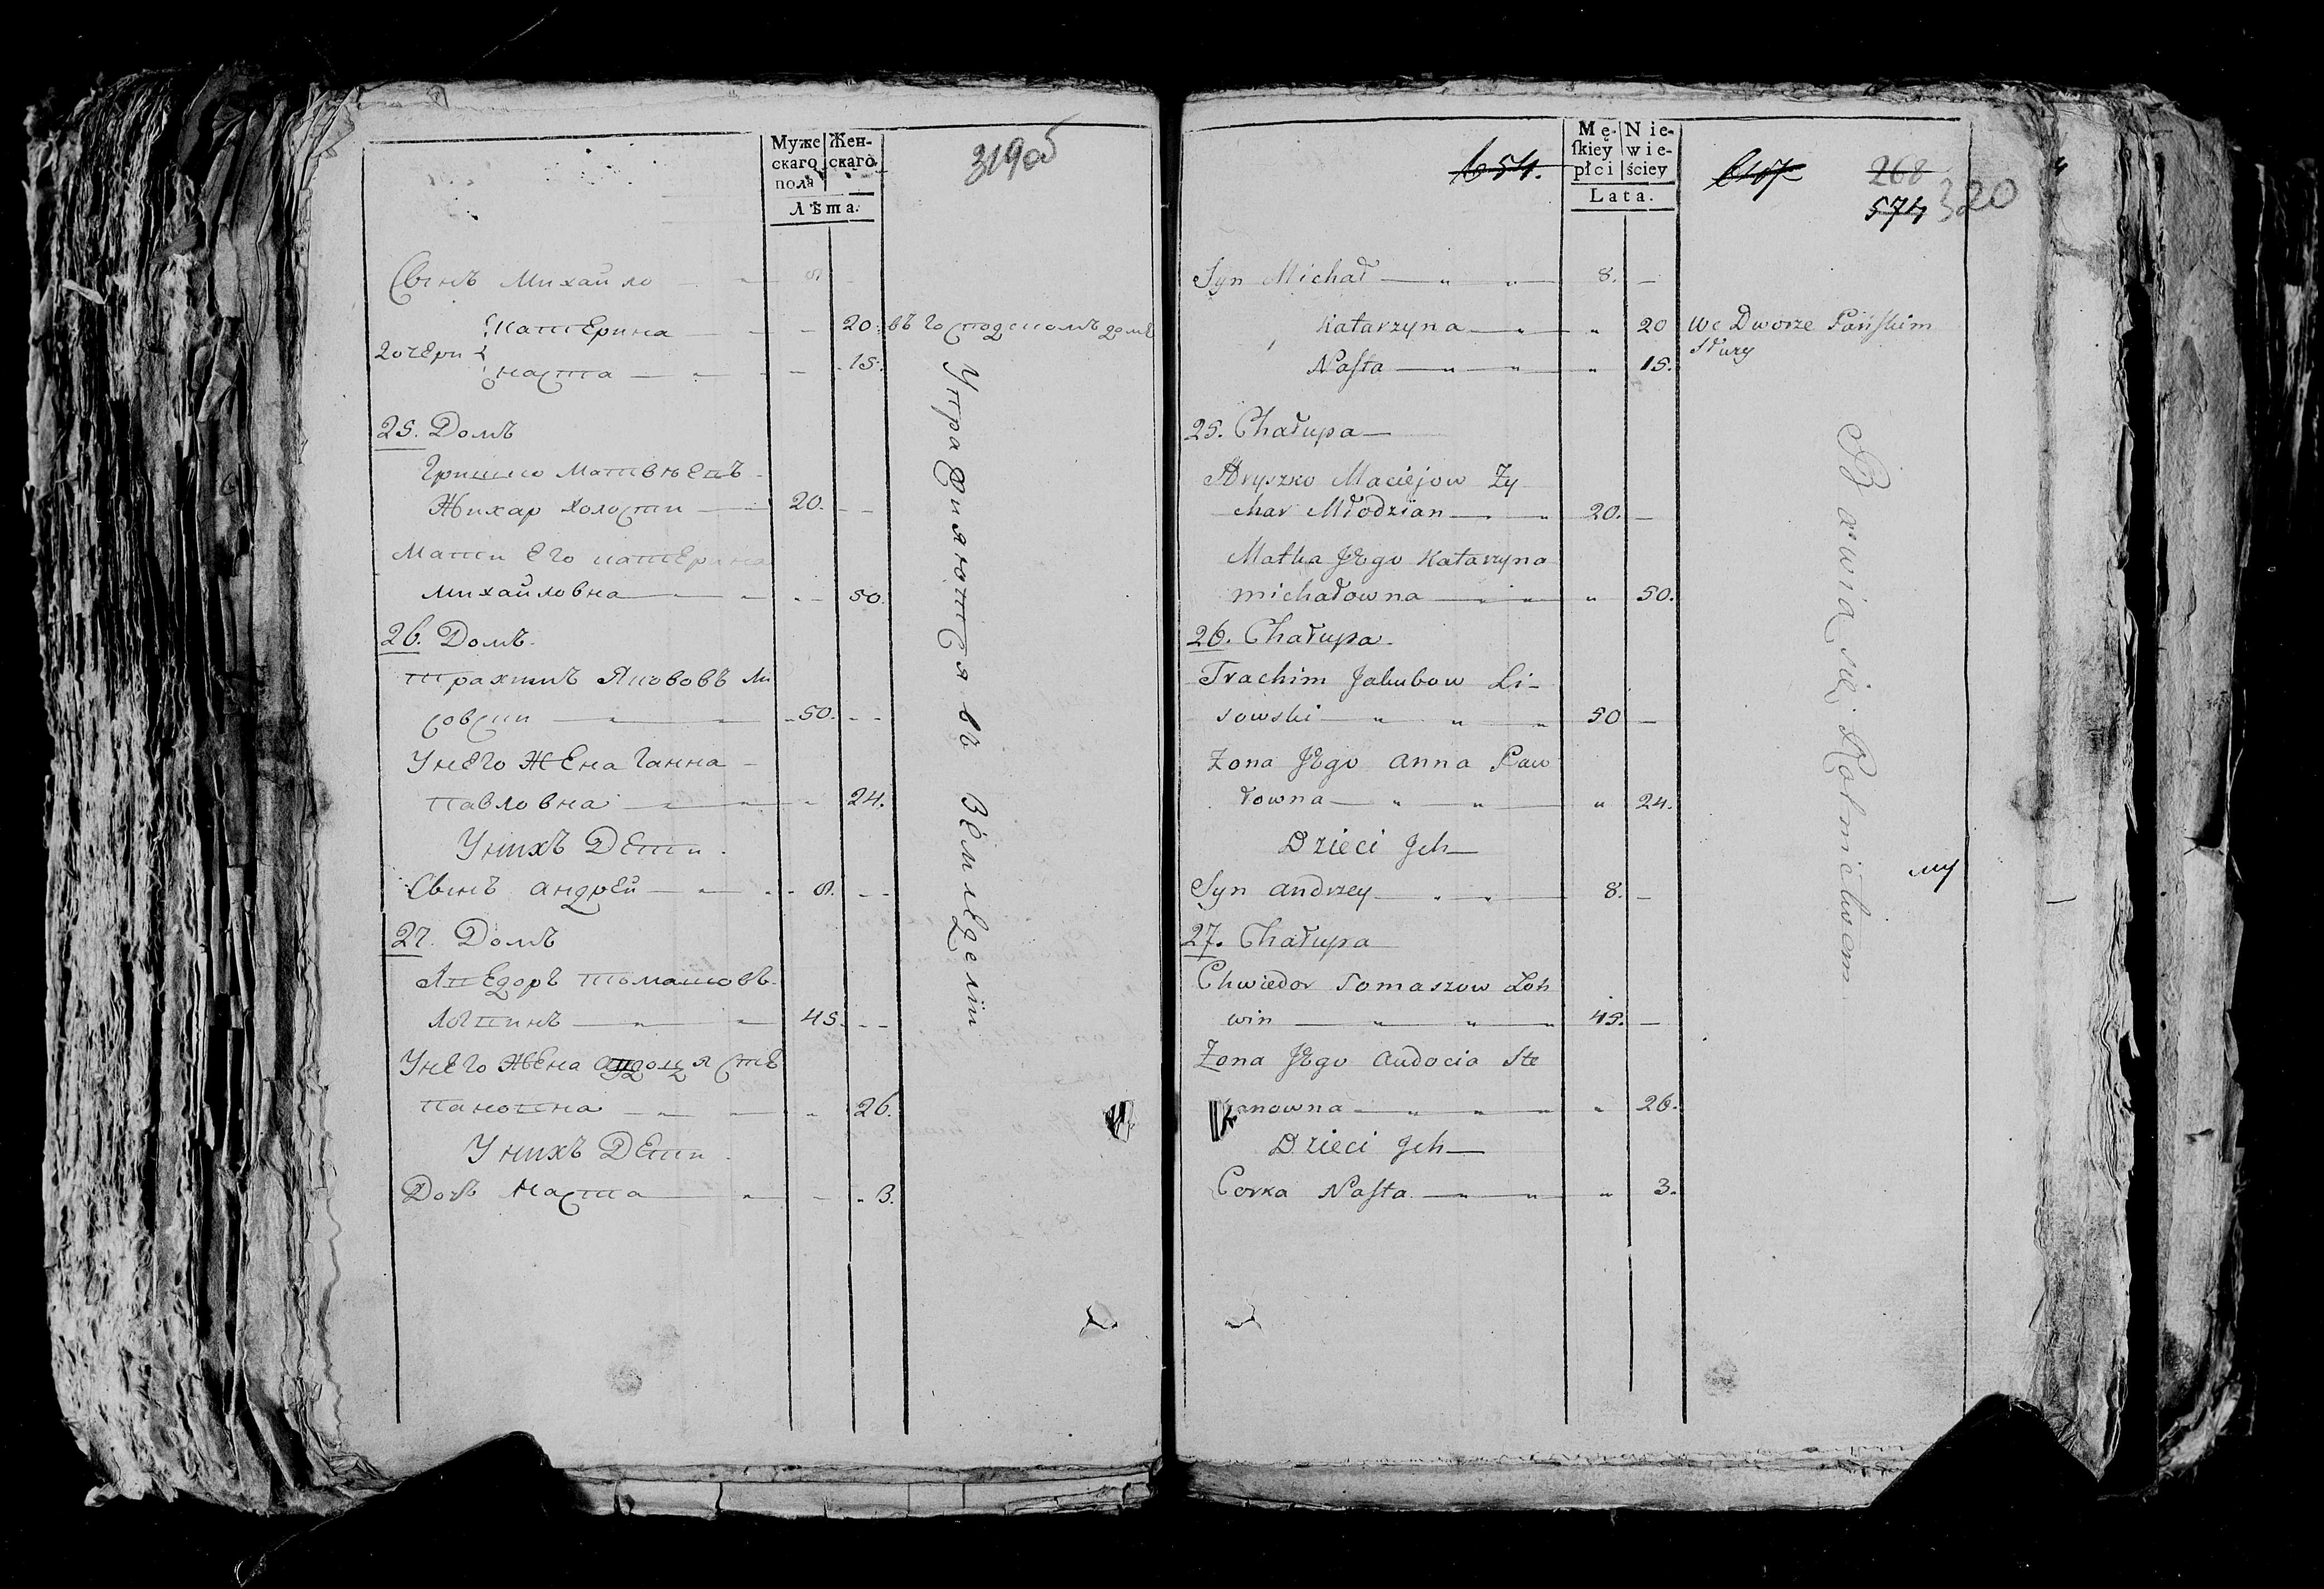 Муже
скаго
пола
Жен-
скаго
Лѣта.
319об
Сынъ Михайло 8
Катерина 20. въ господскомъ домѣ
дочери
Наста 15.
25. Домъ
Гришко Матвѣевъ
Жихар холости 20.
Мати Его Катерина
Михайловна 50.
26. Домъ.
Трахимъ Якововъ Ли
совски 50.
У него Жена Ганна
Павловна 24.
У нихъ Дети.
Сынъ Андрей 8.
27. Домъ
Хведоръ Томашовъ
Логвинъ 45.
У него Жена Авдоця Сте
пановна 26.
У нихъ Дети.
Дочь Наста 3.
Упражняются въ Земледелiи
654.
Mę-
ſkiey
płci
Nie-
wie-
ściey
Lata.
268
574
320
Syn Michał 8.
Katarzyna 20 We Dworze Pańskim
służy
Naſta 15.
25. Chałupa
Hryszko Maciejow Ży
char Młodzian 20.
Matka Jego Katarzyna
michałowna 50.
26. Chałupa
Trachim Jakubow Li-
sowski 50
Zona Jego Anna Paw
łowna 24.
Dzieci Jch
Syn Andrzey 8.
27. Chałupa
Chwiedor Tomaszow Loh
win 45.
Zona Jego Audocia Ste
panowna 26.
Dzieci Jch
Corka Naſta 3.
Bawią się Rolnictwem